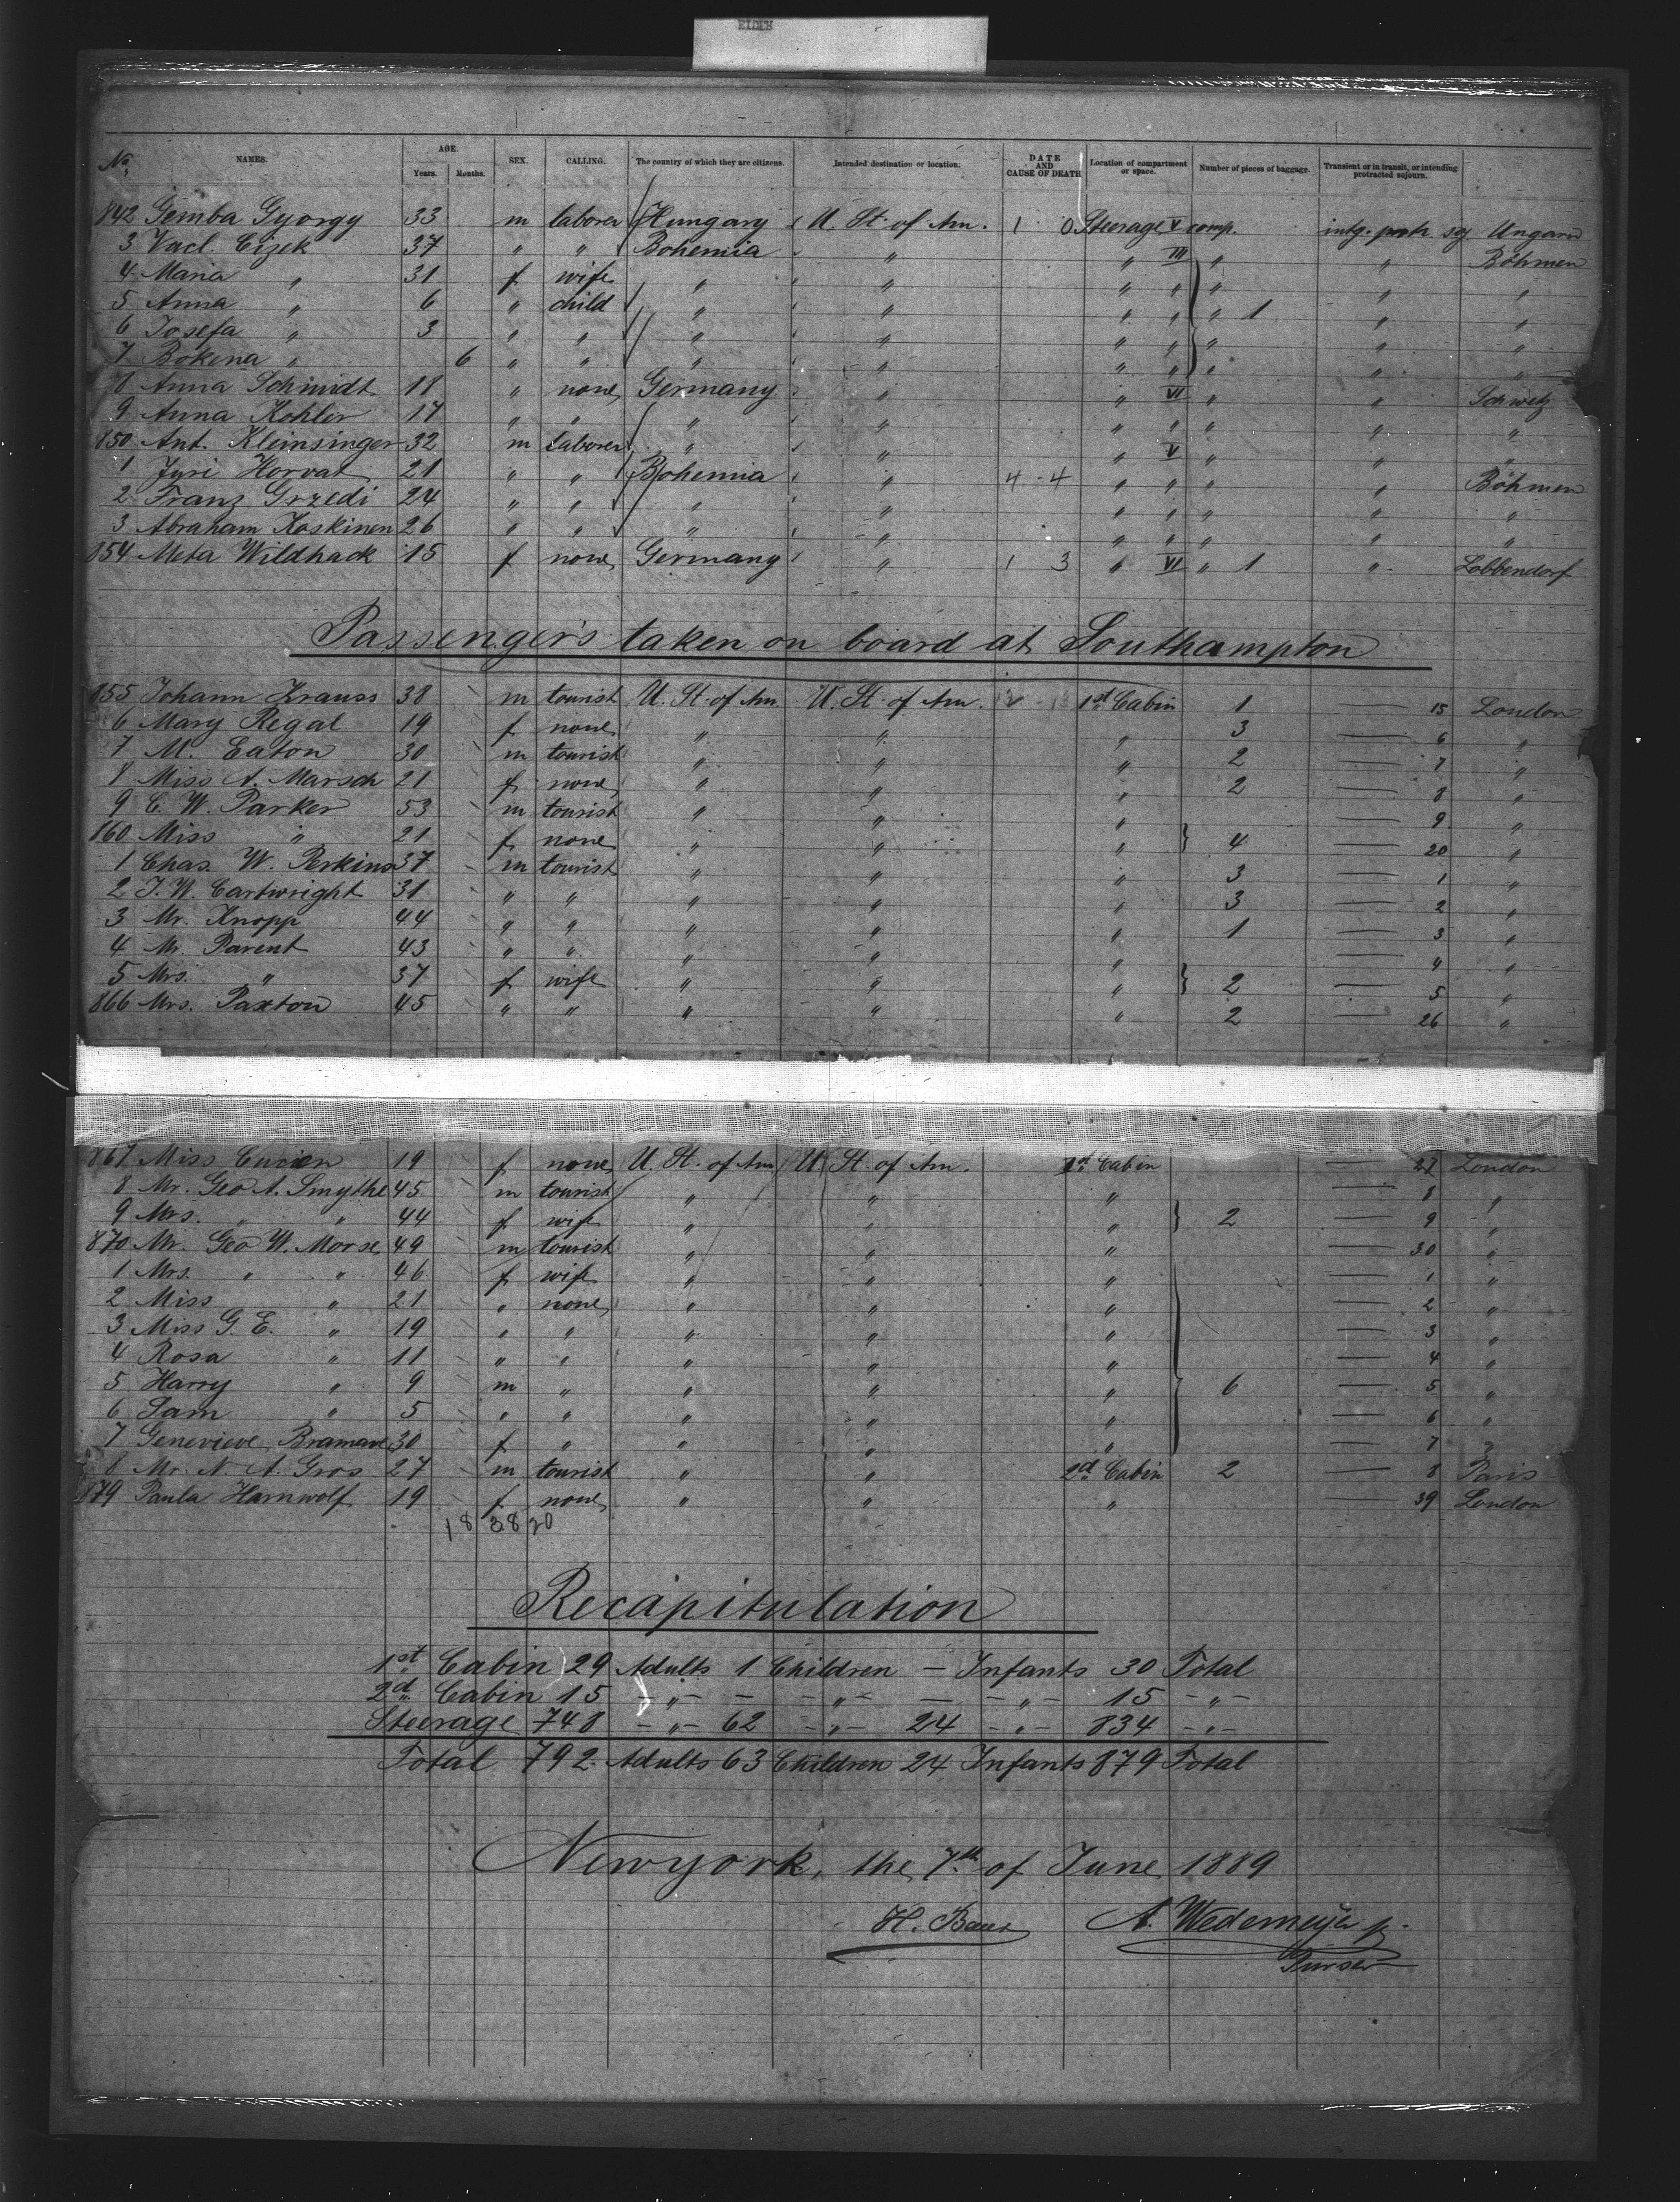 EIDER
No. NAMES. AGE. Years. Months. SEX. CALLING. The country of which they are citizens. Intended destination or location. DATE AND CAUSE OF DEATH Location of compartment or space. Number of pieces of baggage. Transient or in transit, or intending protracted sojourn.
842 Gemba Gyorgy 33 m laborer Hungary U. St. of Am. 1 0 Steerage V comp. intg. protr. soj. Ungarn
3 Vacl. Cizek 37 " " Bohemia " " III " " Böhmen
4 Maria " 31 f wife " " " " " " "
5 Anna " 6 " child " " " " " 1 " "
6 Josefa " 3 " " " " " " " " "
7 Bokena " 6 " " " " " " " " "
8 Anna Schmidt 18 " none Germany " " VI " " Schwetz
9 Anna Kohler 17 " " " " " " " " "
850 Ant. Kleinsinger 32 m Laborer " " " V " " "
1 Jyri Horvat 21 " " Bohemia " 4 - 4 " " " " Böhmen
2 Franz Grzedi 24 " " " " " " " " "
3 Abraham Koskinen 26 " " " " " " " " "
854 Meta Wildhack 15 f none Germany " 1 3 " VI " 1 " Lobbendorf
Passengers taken on board at Southampton
855 Johann Krauss 38 m tourist U. St. of Am. U. St. of Am. 1st Cabin 1 — 15 London
6 Mary Regal 19 f none " " " 3 — 6 "
7 M. Eaton 30 m tourist " " " 2 — 7 "
8 Miss A. Marsch 21 f none " " " 2 — 8 "
9 C. W. Parker 53 m tourist " " " — 9 "
860 Miss " 21 f none " " " 4 — 20 "
1 Chas. W. Perkins 37 m tourist " " " 3 — 1 "
2 J. W. Cartwright 31 " " " " " 3 — 2 "
3 Mr. Knopp 44 " " " " " 1 — 3 "
4 Mr. Parent 43 " " " " " — 4 "
5 Mrs. " 37 f wife " " " 2 — 5 "
866 Mrs. Paxton 45 " " " " " 2 — 26 "
867 Miss 19 f none U. St. of Am. U. St. of Am. 1st Cabin — 27 London
8 Mr. Geo A. Smythe 45 m tourist " " " — 8 "
9 Mrs. " " 44 f wife " " " 2 — 9 "
870 Mr. Geo W. Morse 49 m tourist " " " — 30 "
1 Mrs. " " 46 f wife " " " — 1 "
2 Miss " 21 " none " " " — 2 "
3 Miss G. E. " 19 " " " " " — 3 "
4 Rosa " 11 " " " " " — 4 "
5 Harry " 9 m " " " " 6 — 5 "
6 Sam " 5 " " " " " — 6 "
7 Genevieve 30 f " " " " — 7 "
8 Mr. N. A. Gros 27 m tourist " " 2d Cabin 2 — 8 Paris
879 Paula Hamwolf 19 f none " " " — 39 London
18 38 20
Recapitulation
1st Cabin 29 Adults 1 Children — Infants 30 Total
2d Cabin 15 -"- — -"- — -"- 15 -"-
Steerage 748 -"- 62 -"- 24 -"- 834 -"-
Total 792 Adults 63 Children 24 Infants 879 Total
Newyork, the 7th of June 1889
H. Baur A. Wedemeyer
Purser